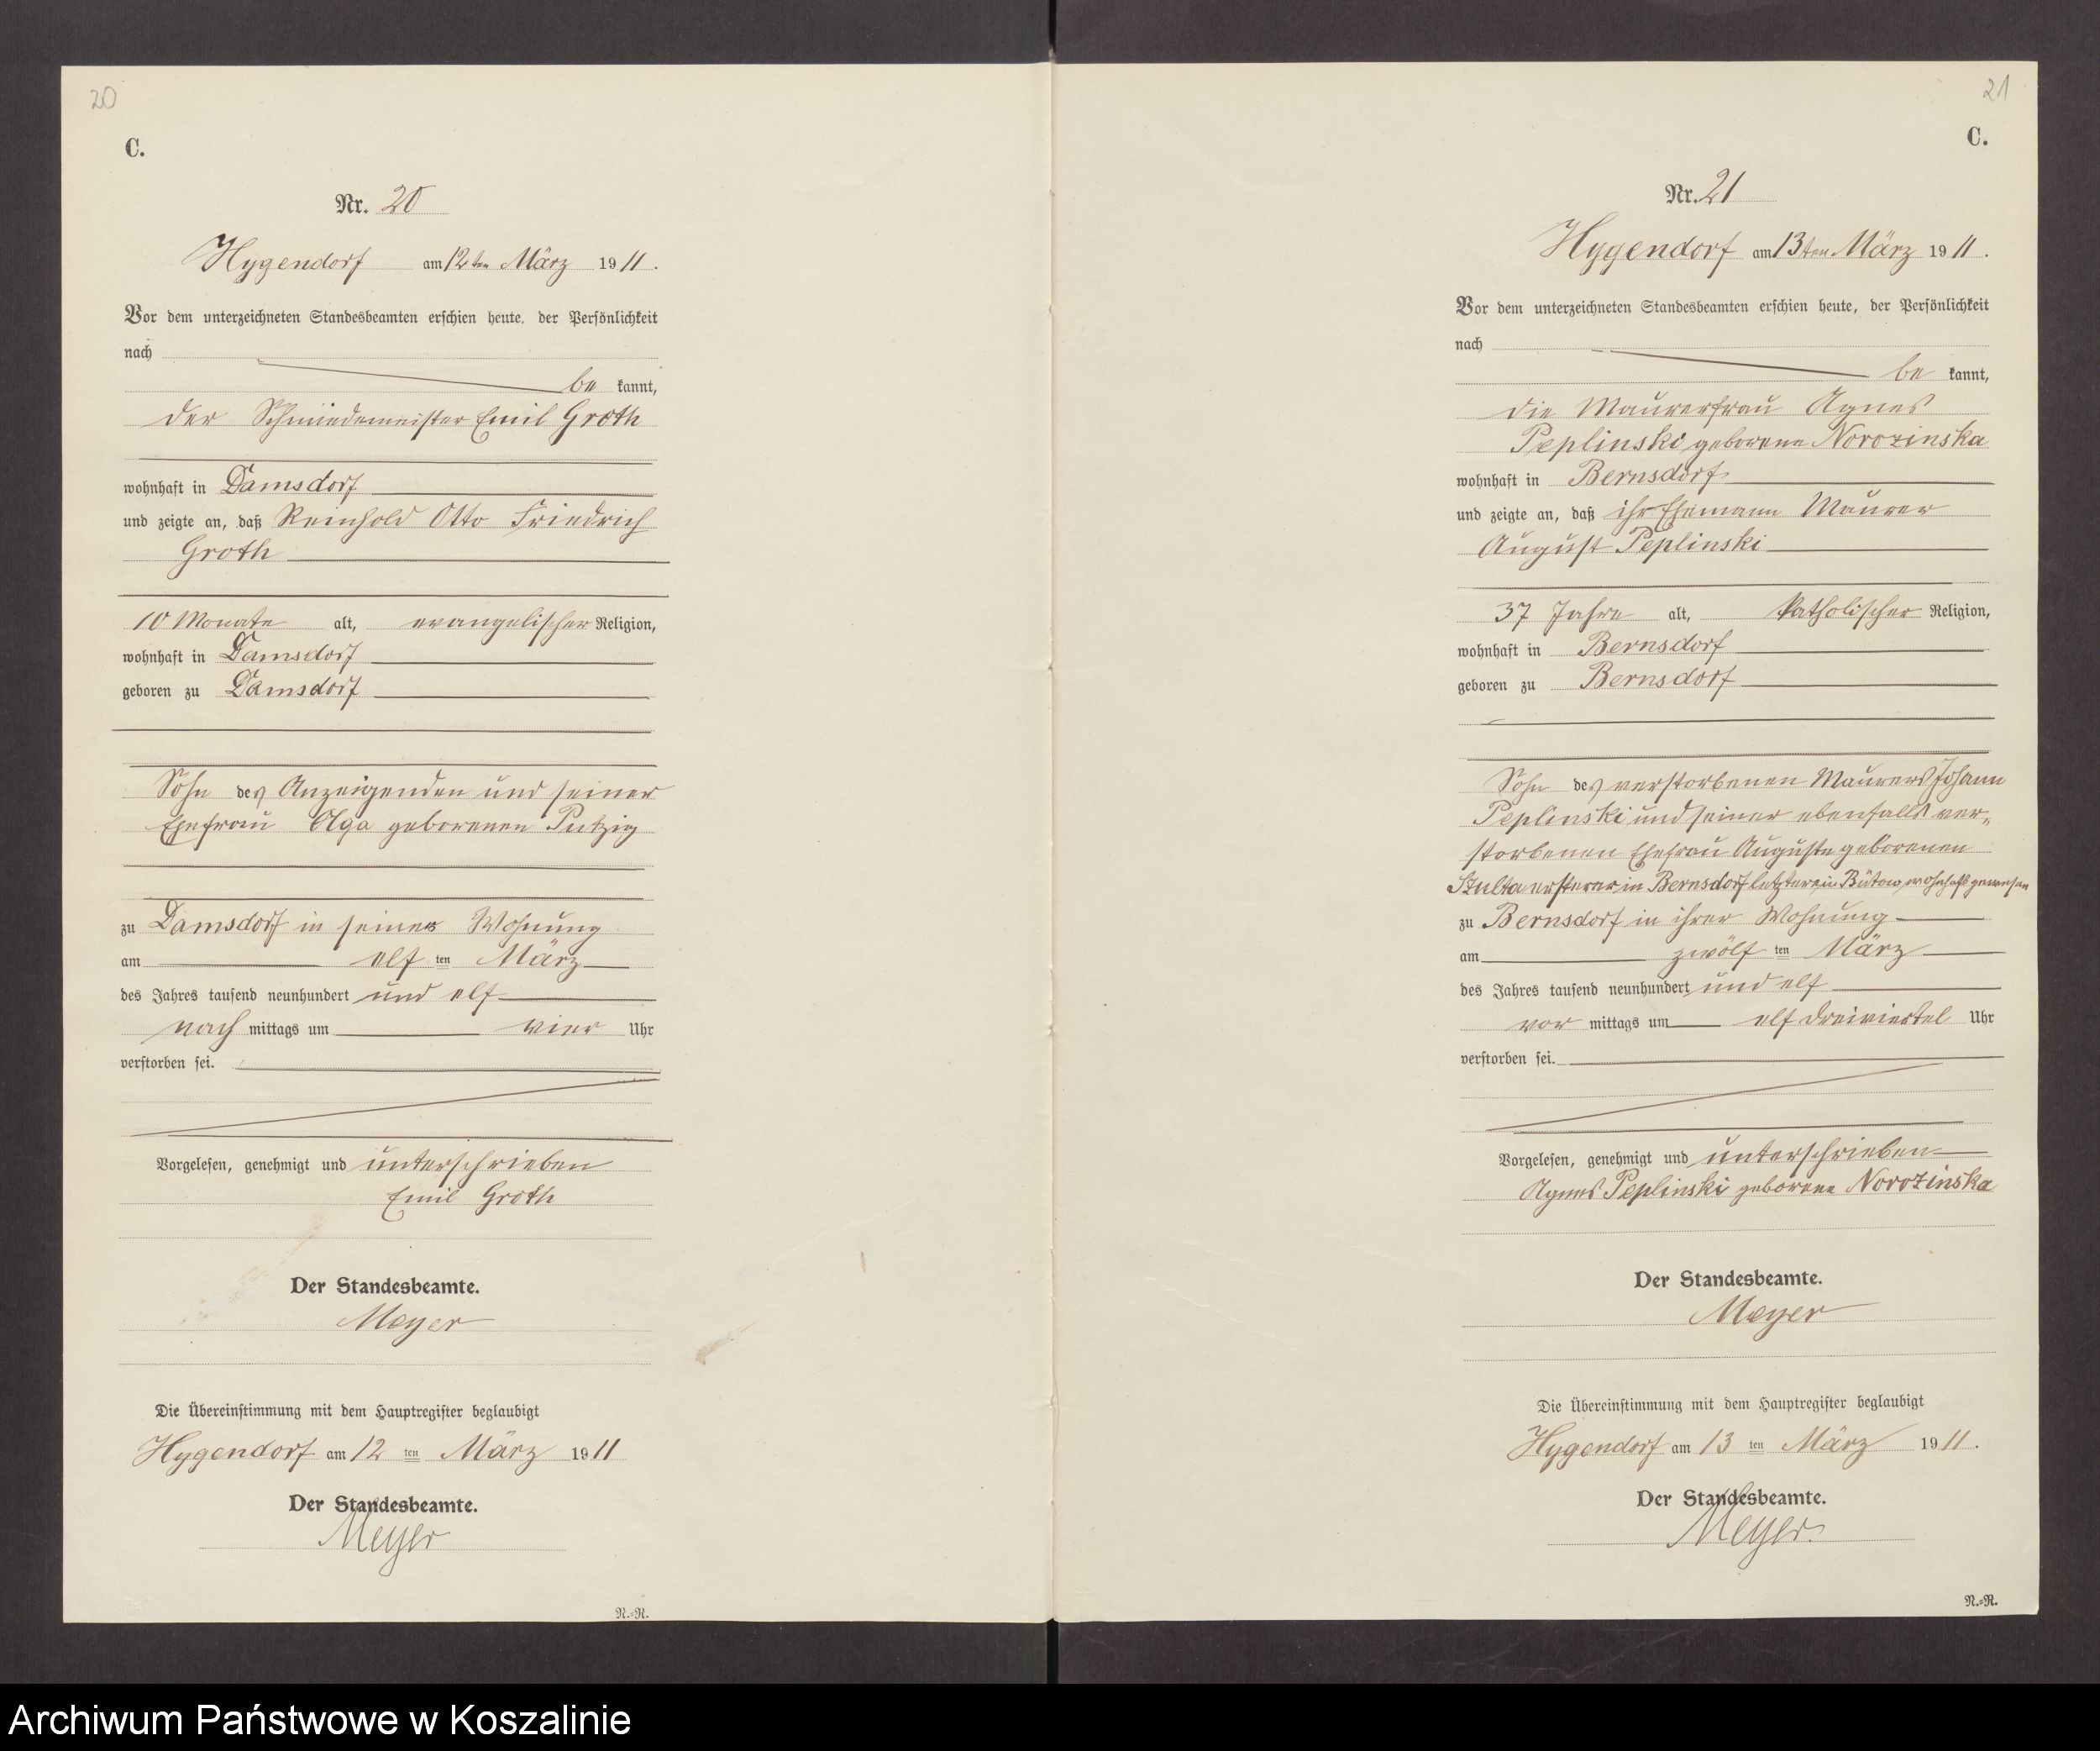 20
C.
Nr. 20
Hygendorf am 12ten März 1911.
Vor dem unterzeichneten Standesbeamten erschien heute, der Persönlichkeit
nach
be kannt,
der Schmiedemeister Emil Groth
wohnhaft in Damsdorf
und zeigte an, daß Reinhold Otto Friedrich
Groth
10 Monate alt, evangelischer Religion,
wohnhaft in Damsdorf
geboren zu Damsdorf
Sohn des Anzeigenden und seiner
Ehefrau Olga geborenen Putzig
zu Damsdorf in seiner Wohnung
am elf ten März
des Jahres tausend neunhundert und elf
nach mittags um vier Uhr
verstorben sei.
Vorgelesen, genehmigt und unterschrieben
Emil Groth
Der Standesbeamte.
Meyer
Die Übereinstimmung mit dem Hauptregister beglaubigt
Hygendorf am 12 ten März 1911
Der Standesbeamte.
Meyer
N.=R.
21
C.
Nr. 21
Hygendorf am 13ten März 1911.
Vor dem unterzeichneten Standesbeamten erschien heute, der Persönlichkeit
nach
be kannt,
die Maurerfrau Agnes
Peplinski geborene Norozinska
wohnhaft in Bernsdorf
und zeigte an, daß ihr Ehemann Maurer
August Peplinski
37 Jahre alt, katholischer Religion,
wohnhaft in Bernsdorf
geboren zu Bernsdorf
Sohn des verstorbenen Maurers Johann
Peplinski und seiner ebenfalls ver-
storbenen Ehefrau Auguste geborenen
Szulta ersterer in Bernsdorf letztere in Bütow wohnhaft gewesen
zu Bernsdorf in ihrer Wohnung
am zwölf ten März
des Jahres tausend neunhundert und elf
vor mittags um elf dreiviertel Uhr
verstorben sei.
Vorgelesen, genehmigt und unterschrieben
Agnes Peplinski geborene Norozinska
Der Standesbeamte.
Meyer
Die Übereinstimmung mit dem Hauptregister beglaubigt
Hygendorf am 13 ten März 1911.
Der Standesbeamte.
Meyer.
N.=R.
Archiwum Państwowe w Koszalinie